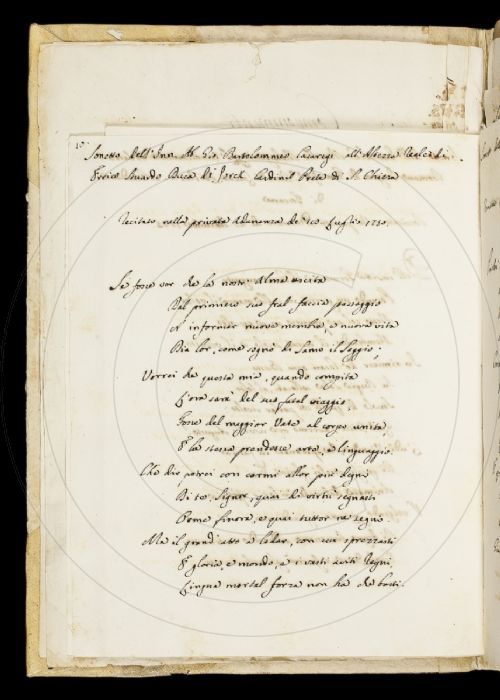 10
Sonetto dell' Gio. Bartolommeo Casaregi all' Altezza Reale di
Errico Stuardo Duca di Jorck Cardinal Prete di S.
Recitato nella privata Adunanza de' 10 Luglio 1750.
Se fosse ver che la nostr' Alma uscita
Dal primiero suo fral faccia passaggio
A' informar nuove membra, e nuova vita
Dia lor, come sognò di Samo il Saggio;
Vorrei che questa mia, quando compita
L'ora sarà del suo fatal viaggio
Fosse del maggior Vate al corpo unita,
E la stessa prendesse arte, e linguaggio.
Che dir potrei con carmi allor più degni
Di te Signor, quai di virtù segnasti
Orme finora, e quai tuttor ne segni
Ma il grand' atto a lodar, con cui sprezzasti
E gloria, e mondo, e i vasti aviti Regni,
Lingua mortal forza non ha che basti.